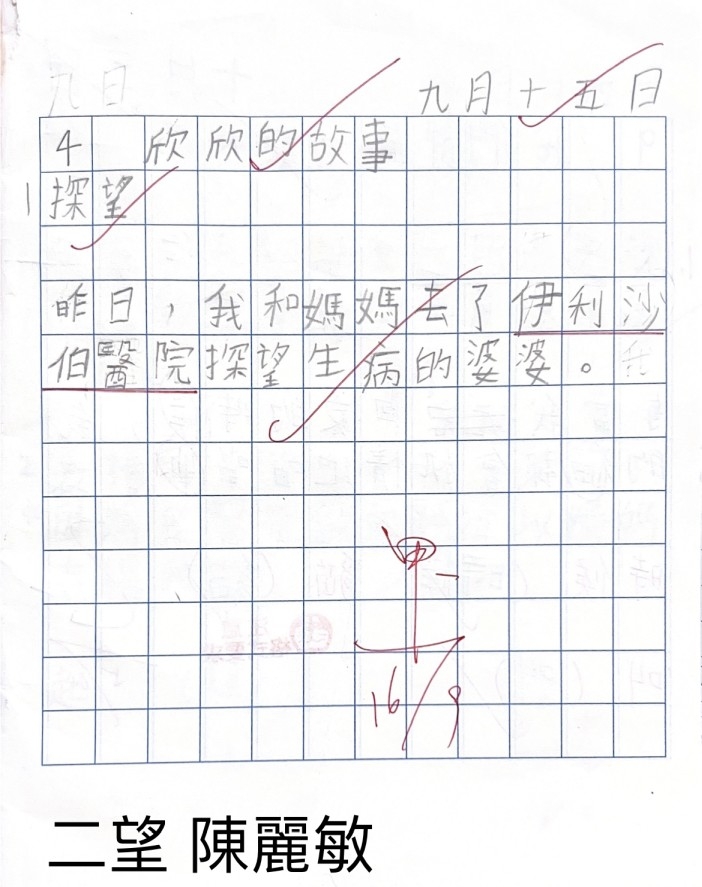 九月十五日
4 欣欣的故事
1 探望
昨日，我和媽媽去了伊利沙
伯醫院探望生病的婆婆。
甲
16/9
二望 陳麗敏